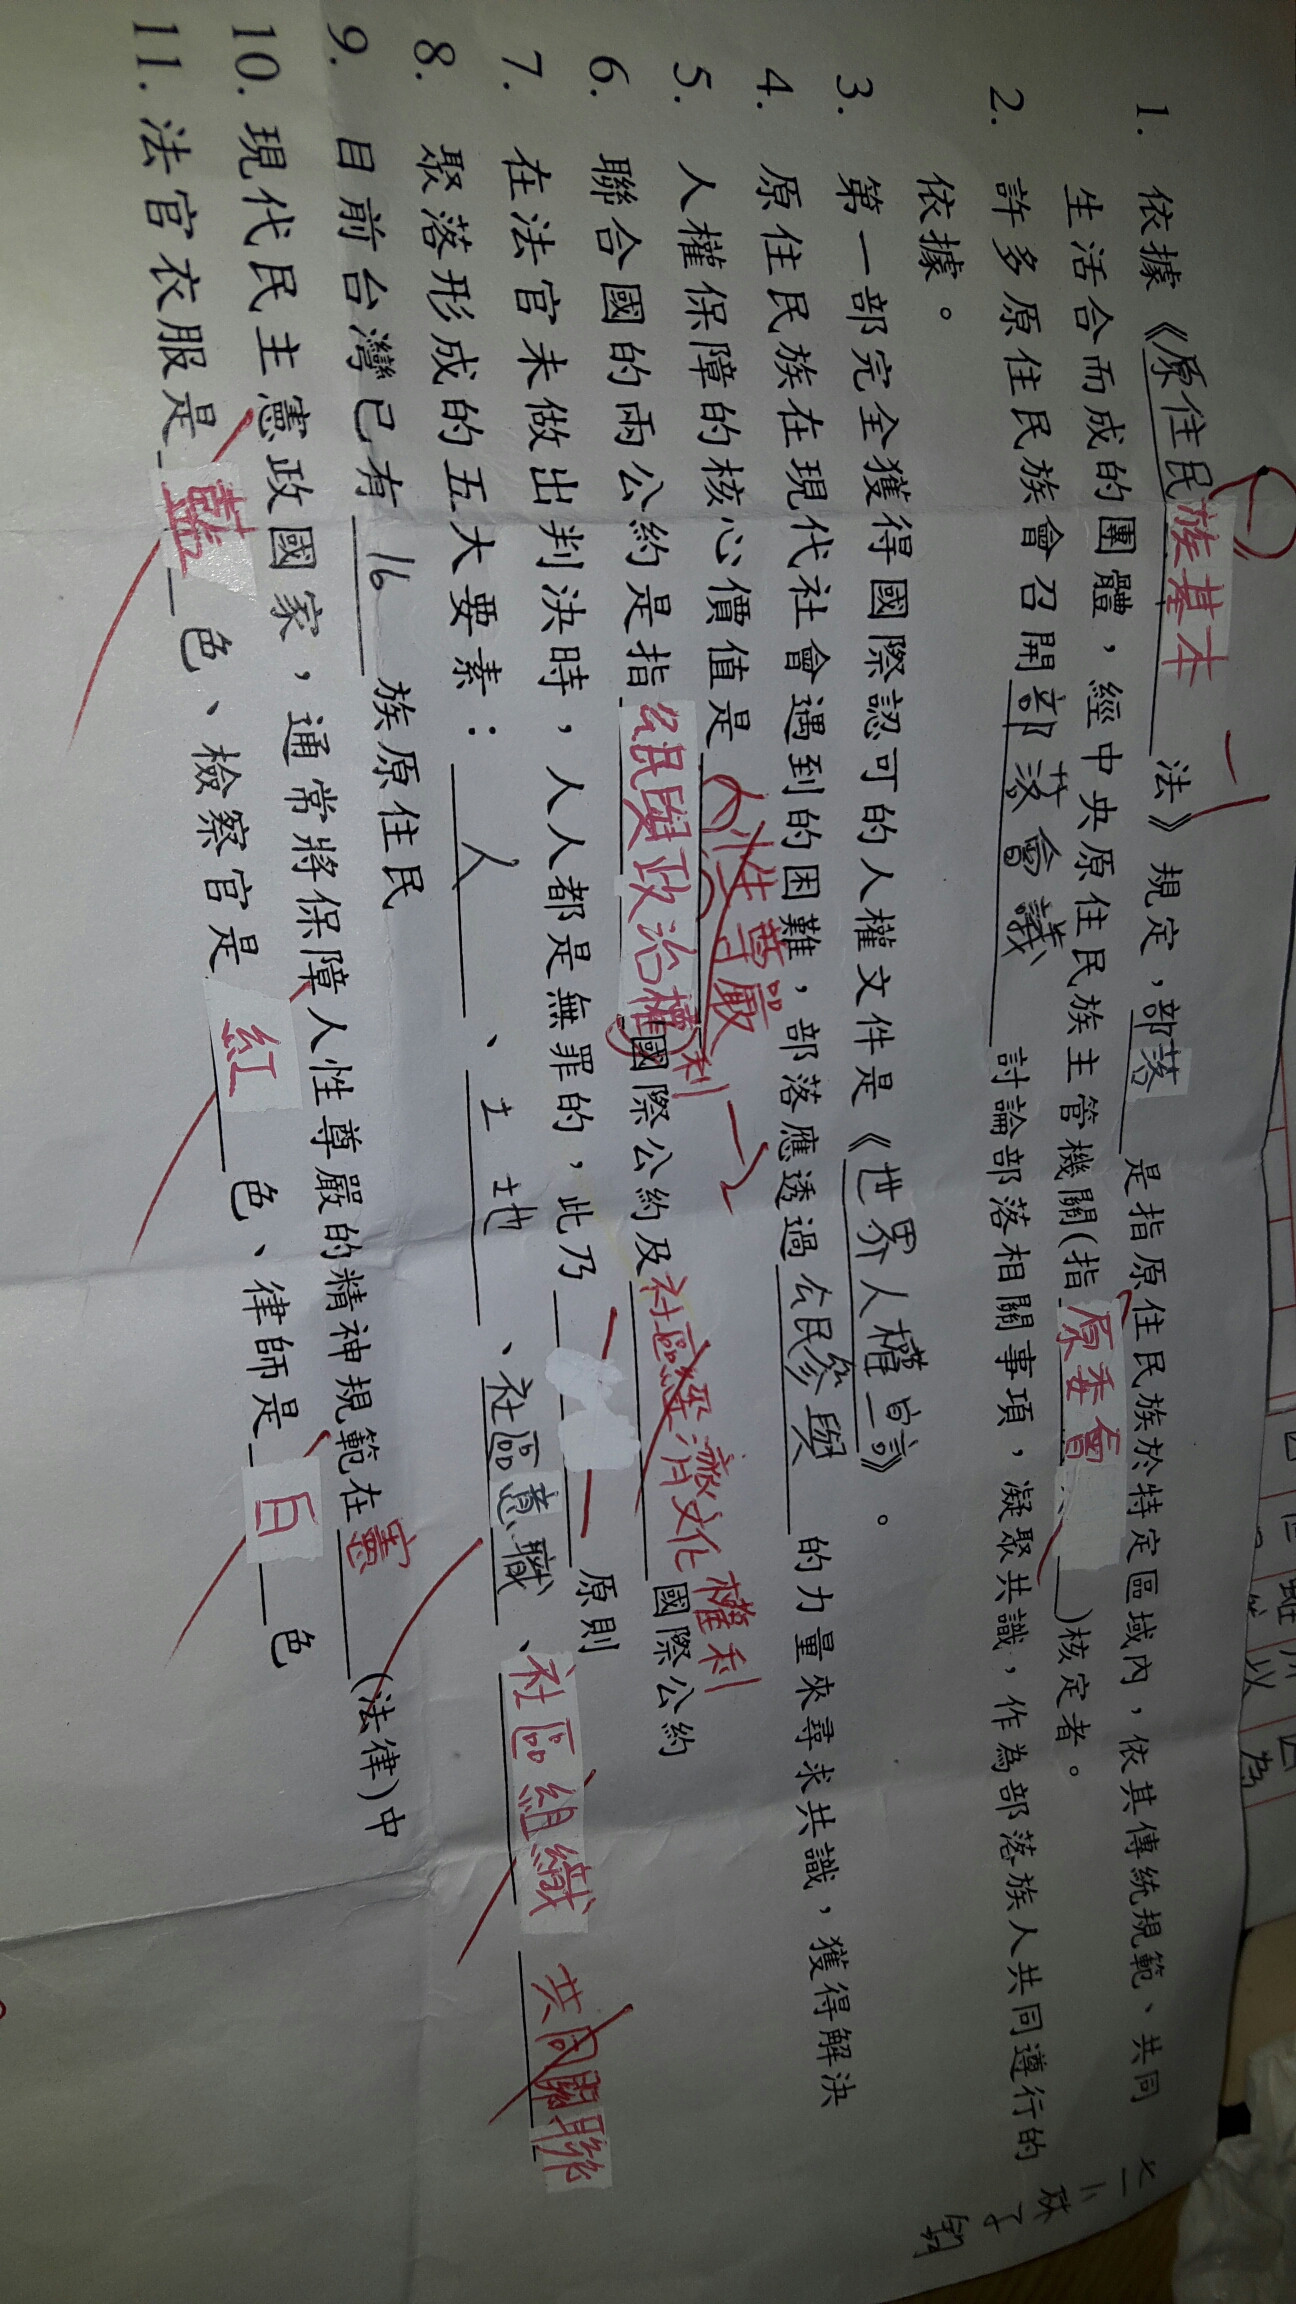 1. 依據《原住民族基本法》規定，部落是指原住民族於特定區域內，依其傳統規範、共同
生活合而成的團體，經中央原住民族主管機關(指原委會)核定者。
2. 許多原住民族會召開部落會議討論部落相關事項，凝聚共識，作為部落族人共同遵行的
依據。
3. 第一部完全獲得國際認可的人權文件是《世界人權宣言》。
4. 原住民族在現代社會遇到的困難，部落應透過公民參與的力量來尋求共識，獲得解決
5. 人權保障的核心價值是人性尊嚴
6. 聯合國的兩公約是指公民與政治權利國際公約及社經濟文化權利國際公約
7. 在法官未做出判決時，人人都是無罪的，此乃原則
8. 聚落形成的五大要素：人、土地、社區意職、社區組織 共同關聯
9. 目前台灣已有16族原住民
10. 現代民主憲政國家，通常將保障人性尊嚴的精神規範在憲(法律)中
11. 法官衣服是藍色、檢察官是紅色、律師是白色